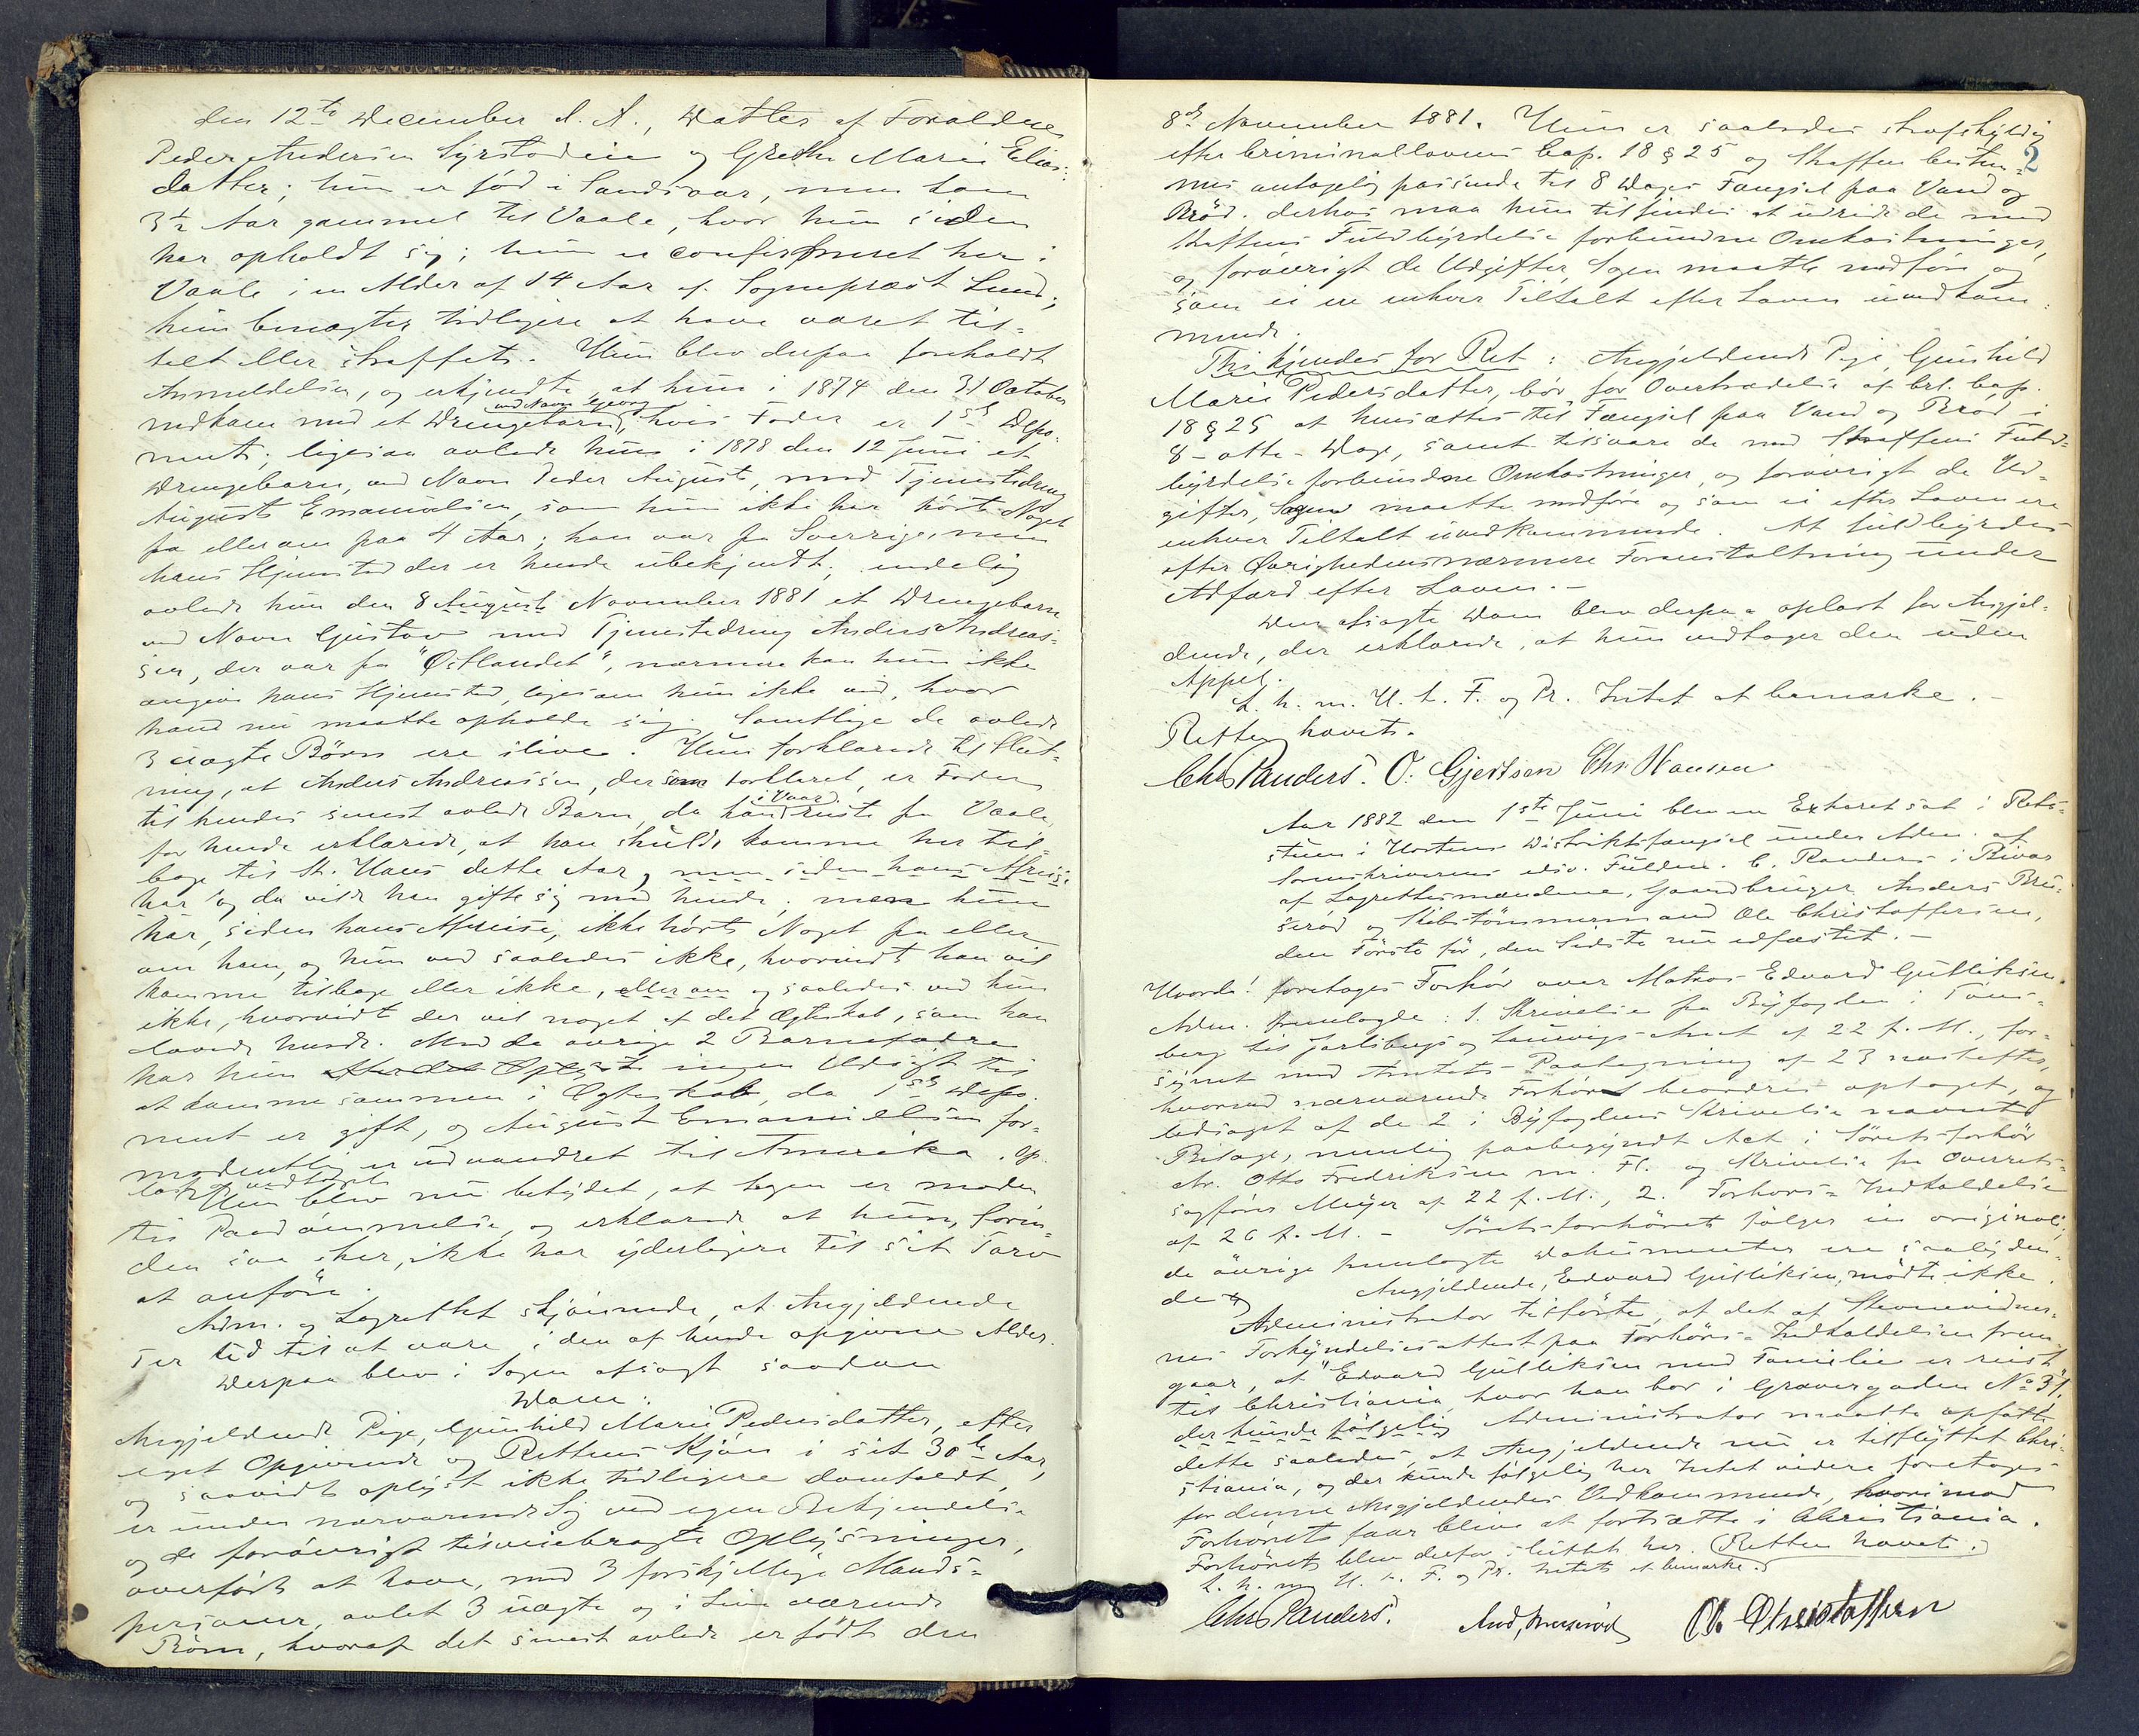 den 12te December d. A., Datter af Forældrene
Peder Andersen Syrstadeie og Grethe Marie Elias-
datter; hun er född i Sandsvær, men kom
3½ Aar gammel til Vaale, hvor hun siden
har opholdt sig; hun er confirmeret her i
Vaale i en Alder af 14 Aar af Sogneprest Lund;
hun benægter tidligere at have været til-
talt eller straffet. Hun blev derpaa foreholdt
Anmeldelsen, og erkjendte, at hun i 1874 den 31 October
ved Navn Georg
nedkom med et Drengebarn, hvis Fader er 1ste Depo-
nent; ligesaa avlede hun i 1878 den 12 Juni et
Drengebarn, ved Navn Peder August, med Tjenestedreng
August Emanuelsen, som hun ikke har hört Noget
fra eller om paa 4 Aar; han var fra Sverrige, men
hans Hjemsted der er hende ubekjendt; endelig
avlede hun den 8 August November 1881 et Drengebarn
ved Navn Gustav med Tjenestedreng Anders Andreas-
sen, der var fra "Östlandet", nærmere kan hun ikke
angive hans Hjemsted, ligesom hun ikke ved, hvor
hand nu maatte opholde sig. Samtlige de avlede
3 uægte Börn ere ilive. Hun forklarede til Slut-
ning, at Anders Andreassen, der som forklaret, er Fader
i Vaar
til hendes senest avlede Barn, da hand reiste fra Vaale,
for hende erklærede, at han skulde komme her til-
bage til St. Hans dette Aar, men siden hans Afreise
har og da vilde han gifte sig med hende; men hun
har, siden hans Afreise, ikke hört Noget fra eller
om ham, og hun ved saaledes ikke, hvorvidt han vil
komme tilbage eller ikke, eller om og saaledes ved hun
ikke, hvorvidt der vil noget af det Ægteskab, som han
lovede hende. Med de övrige 2 Barnefædre
har hun efter det Oplyste ingen Udsigt til
at komme sammen i Ægteskab, da 1ste Depo-
nent er gift, og August Emanuelsen for-
modentlig er udvandret til Amerika. Op-
læst og vedtaget
Hun blev nu betydet, at Sagen er moden
til Paadömmelse, og erklærede at hun, forin-
den saa sker, ikke har yderligere til sit Tarv
at anföre.
Adm. og Lagrettet skjönnede, at Angjeldende
ser ud til at være i den af hende opgivne Alder.
Derpaa blev i Sagen afsagt saadan
Dom:
Angjeldende Pige, Gunhild Marie Pedersdatter, efter
eget Opgivende og Rettens Skjön i sit 30te Aar,
og saavidt oplyst ikke tidligere domfældt,
er under nærværende Sag ved egen Bekjendelse
og de forövrigt tilveiebragte Oplysninger,
overfört at have, med 3 forskjellige Mands-
personer, avlet 3 uægte og i Live værende
Börn, hvoraf det senest avlede er födt den
2
8de November 1881. Hun er saaledes strafskyldig
efter Criminallovens Cap. 18 § 25 og Straffen bestem-
mes antagelig passende til 8 Dages Fængsel paa Vand og
Bröd. Derhos maa hun tilfindes at udrede de med
Straffens Fuldbyrdelse forbundne Omkostninger,
og forövrigt de Udgifter, Sagen maatte medföre og
som ei ere enhver Tiltalt efter Loven uvedkom-
mende.
Thi kjendes for Ret: Angjeldende Pige, Gunhild
Marie Pedersdatter, bör for Overtrædelse af Crl. Cap.
18 § 25 at hensættes til Fængsel paa Vand og Bröd i
8 - otte - Dage, samt tilsvare de med Straffens Fuld-
byrdelse forbundne Omkostninger, og forövrigt de Ud-
gifter, Sagen maatte medföre og som ei efter Loven ere
enhver Tiltalt uvedkommende. At fuldbyrdes
efter Övrighedens nærmere Foranstaltning under
Adfærd efter Loven. -
Den afsagte Dom blev derpaa oplæst for Angjel-
dende, der erklærede, at hun vedtager den uden
Appel.
L. h. m. U. t. F. og Pr. Intet at bemærke. -
Retten hævet.
Chs Randers. O. Gjertsen Chr. Hansen
Aar 1882 den 1ste Juni blev en Extraret sat i Rets-
stuen i Hortens Distriktsfængsel under Adm. af
Sorenskriverens edsv. Fuldm. C. Randers i Bivær
af Lagrettesmændene, Gaardbruger Anders Bru-
seröd og Skibstömmermand Ole Christoffersen,
den Förste för, den Sidste nu edfæstet. -
Hvorda! foretages Forhör over Matros Edvard Gulliksen.
Adm. fremlagde: 1. Skrivelse fra Byfogden i Töns-
berg til Jarlsbergs og Laurvigs Amt af 22 f. M., for-
synet med Amtets Paategning af 23 næstefter,
hvorved nærværende Forhör beordres optaget, og
ledsaget af de 2 i Byfogdens Skrivelse nævnte
Bilage, nemlig paabegyndt Act i Söretsforhör
ctr. Otto Fredriksen m. Fl. og Skrivelse fra Overrets-
sagförer Meyer af 22 f. M., 2. Forhörs-Indkaldelse
af 26 f. M. - Söretsforhöret fölger in originali;
de övrige fremlagte Dokumenter ere saalyden-
de
Angjeldende, Edvard Gulliksen, mödte ikke.
Administrator tilförte, at det af Stevnevidner-
nes Forkyndelsesattest paa Forhörs-Indkaldelsen frem-
gaar, at "Edvard Gulliksen med Familie er reist
til Christiania hvor han bor i Gravergaden No 31.
der kunde fölgelig Administrator maatte opfatte
dette saaledes, at Angjeldende nu er tilflyttet Chri-
stiania, og der kunde fölgelig her Intet videre foretages
for denne Angjeldendes Vedkommende, hvorimod
Forhöret faar blive at fortsætte i Christiania.
Forhöret blev derfor sluttet her. Retten hævet.
L. h. m. U. t. F. og Pr. Intet at bemærke.
Chs Randers. And, Bruseröd Ol. Christoffersen